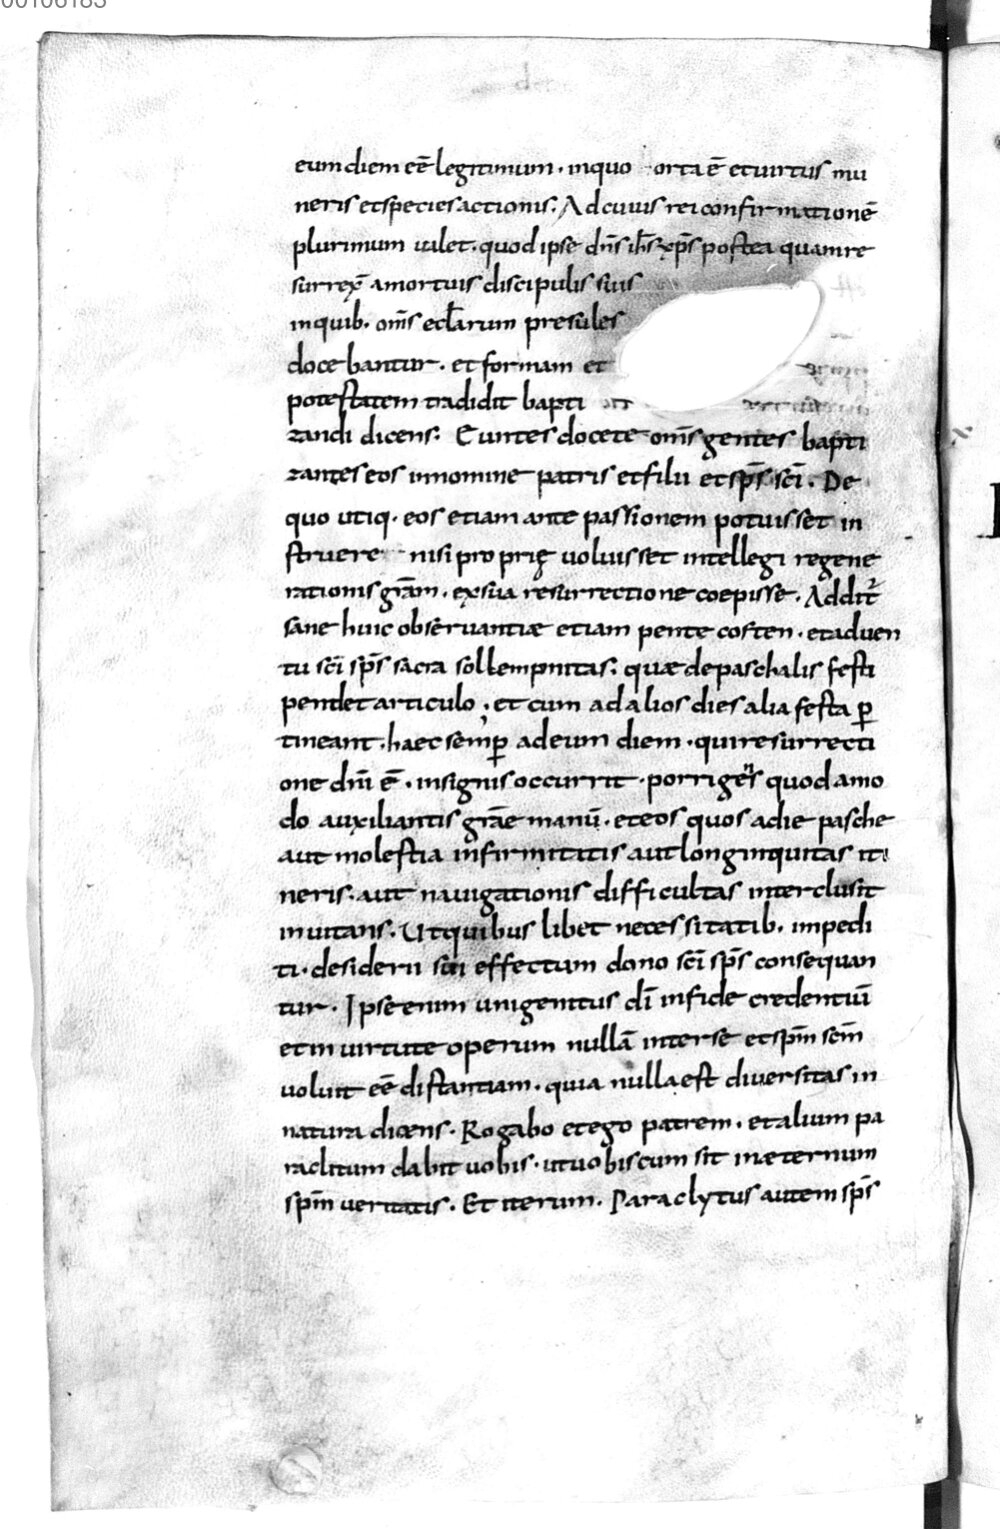 00106183
eum diem eē legitimum · in quo orta ē et uirtus mu
neris et species actionis. Ad cuius rei confirmationē
plurimum ualet · quod ipse dn̄s ih̄s xp̄s postea quam re
surrex̄ a mortuis discipulis suis
in quib· om̄s eccl̄arum presules
docebantur · et formam et
potestatem tradidit bapti
zandi dicens. Euntes docete om̄s gentes bapti
zantes eos in nomine patris et filii et sp̄s sc̄i. De
quo utiq· eos etiam ante passionem potuisset in
struere nisi proprię uoluisset intellegi regene
rationis grām · ex sua resurrectione coepisse. Addit̄
sane huic obseruantiæ etiam pentecosten · et aduen
tu sc̄i sp̄s sacra sollempnitas. quæ de paschalis festi
pendet articulo · et cum ad alios dies alia festa ꝑ
tineant · haec semꝑ ad eum diem · qui resurrecti
one dn̄i ē · insignis occurrit · porrigēs quodamo
do auxiliantis grāe manū · et eos quos a die pasche
aut molestia infirmitatis aut longinquitas iti
neris · aut nauigationis difficultas interclusit
inuitans. Ut quibus libet necessitatib· impedi
ti · desiderii sui effectum dono sc̄i sp̄s consequan
tur. Ipse enim unigenitus dī in fide credentiū
et in uirtute operum nullā inter se et sp̄m sc̄m
uoluit eē distantiam · quia nulla est diuersitas in
natura dicens. Rogabo et ego patrem · et alium pa
raclitum dabit uobis · ut uobiscum sit in æternum
sp̄m ueritatis. Et iterum. Paraclytus autem sp̄s